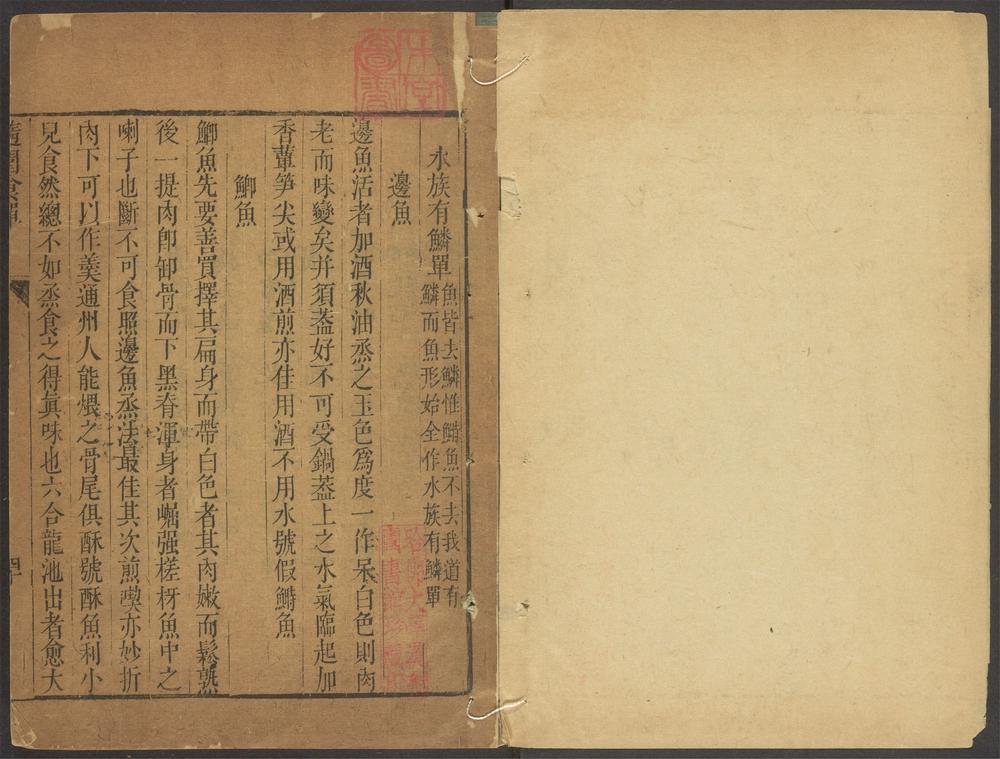 水族有鱗單
魚皆去鱗惟鰣魚不去我道有
鱗而魚形始全作水族有鱗單
邊魚
邊魚活者加酒秋油烝之玉色爲度一作呆白色則肉
老而味變矣并須蓋好不可受鍋蓋上之水氣臨起加
香蕈笋尖或用酒煎亦佳用酒不用水號假鰣魚
鯽魚
鯽魚先要善買擇其扁身而帶白色者其肉嫩而鬆熟
後一提肉卽卸骨而下黑脊渾身者崛强槎枒魚中之
喇子也斷不可食照邊魚烝法最佳其次煎喫亦妙拆
肉下可以作羮通州人能煨之骨尾俱酥號酥魚利小
兒食然總不如烝食之得眞味也六合龍池出者愈大
隨園食單